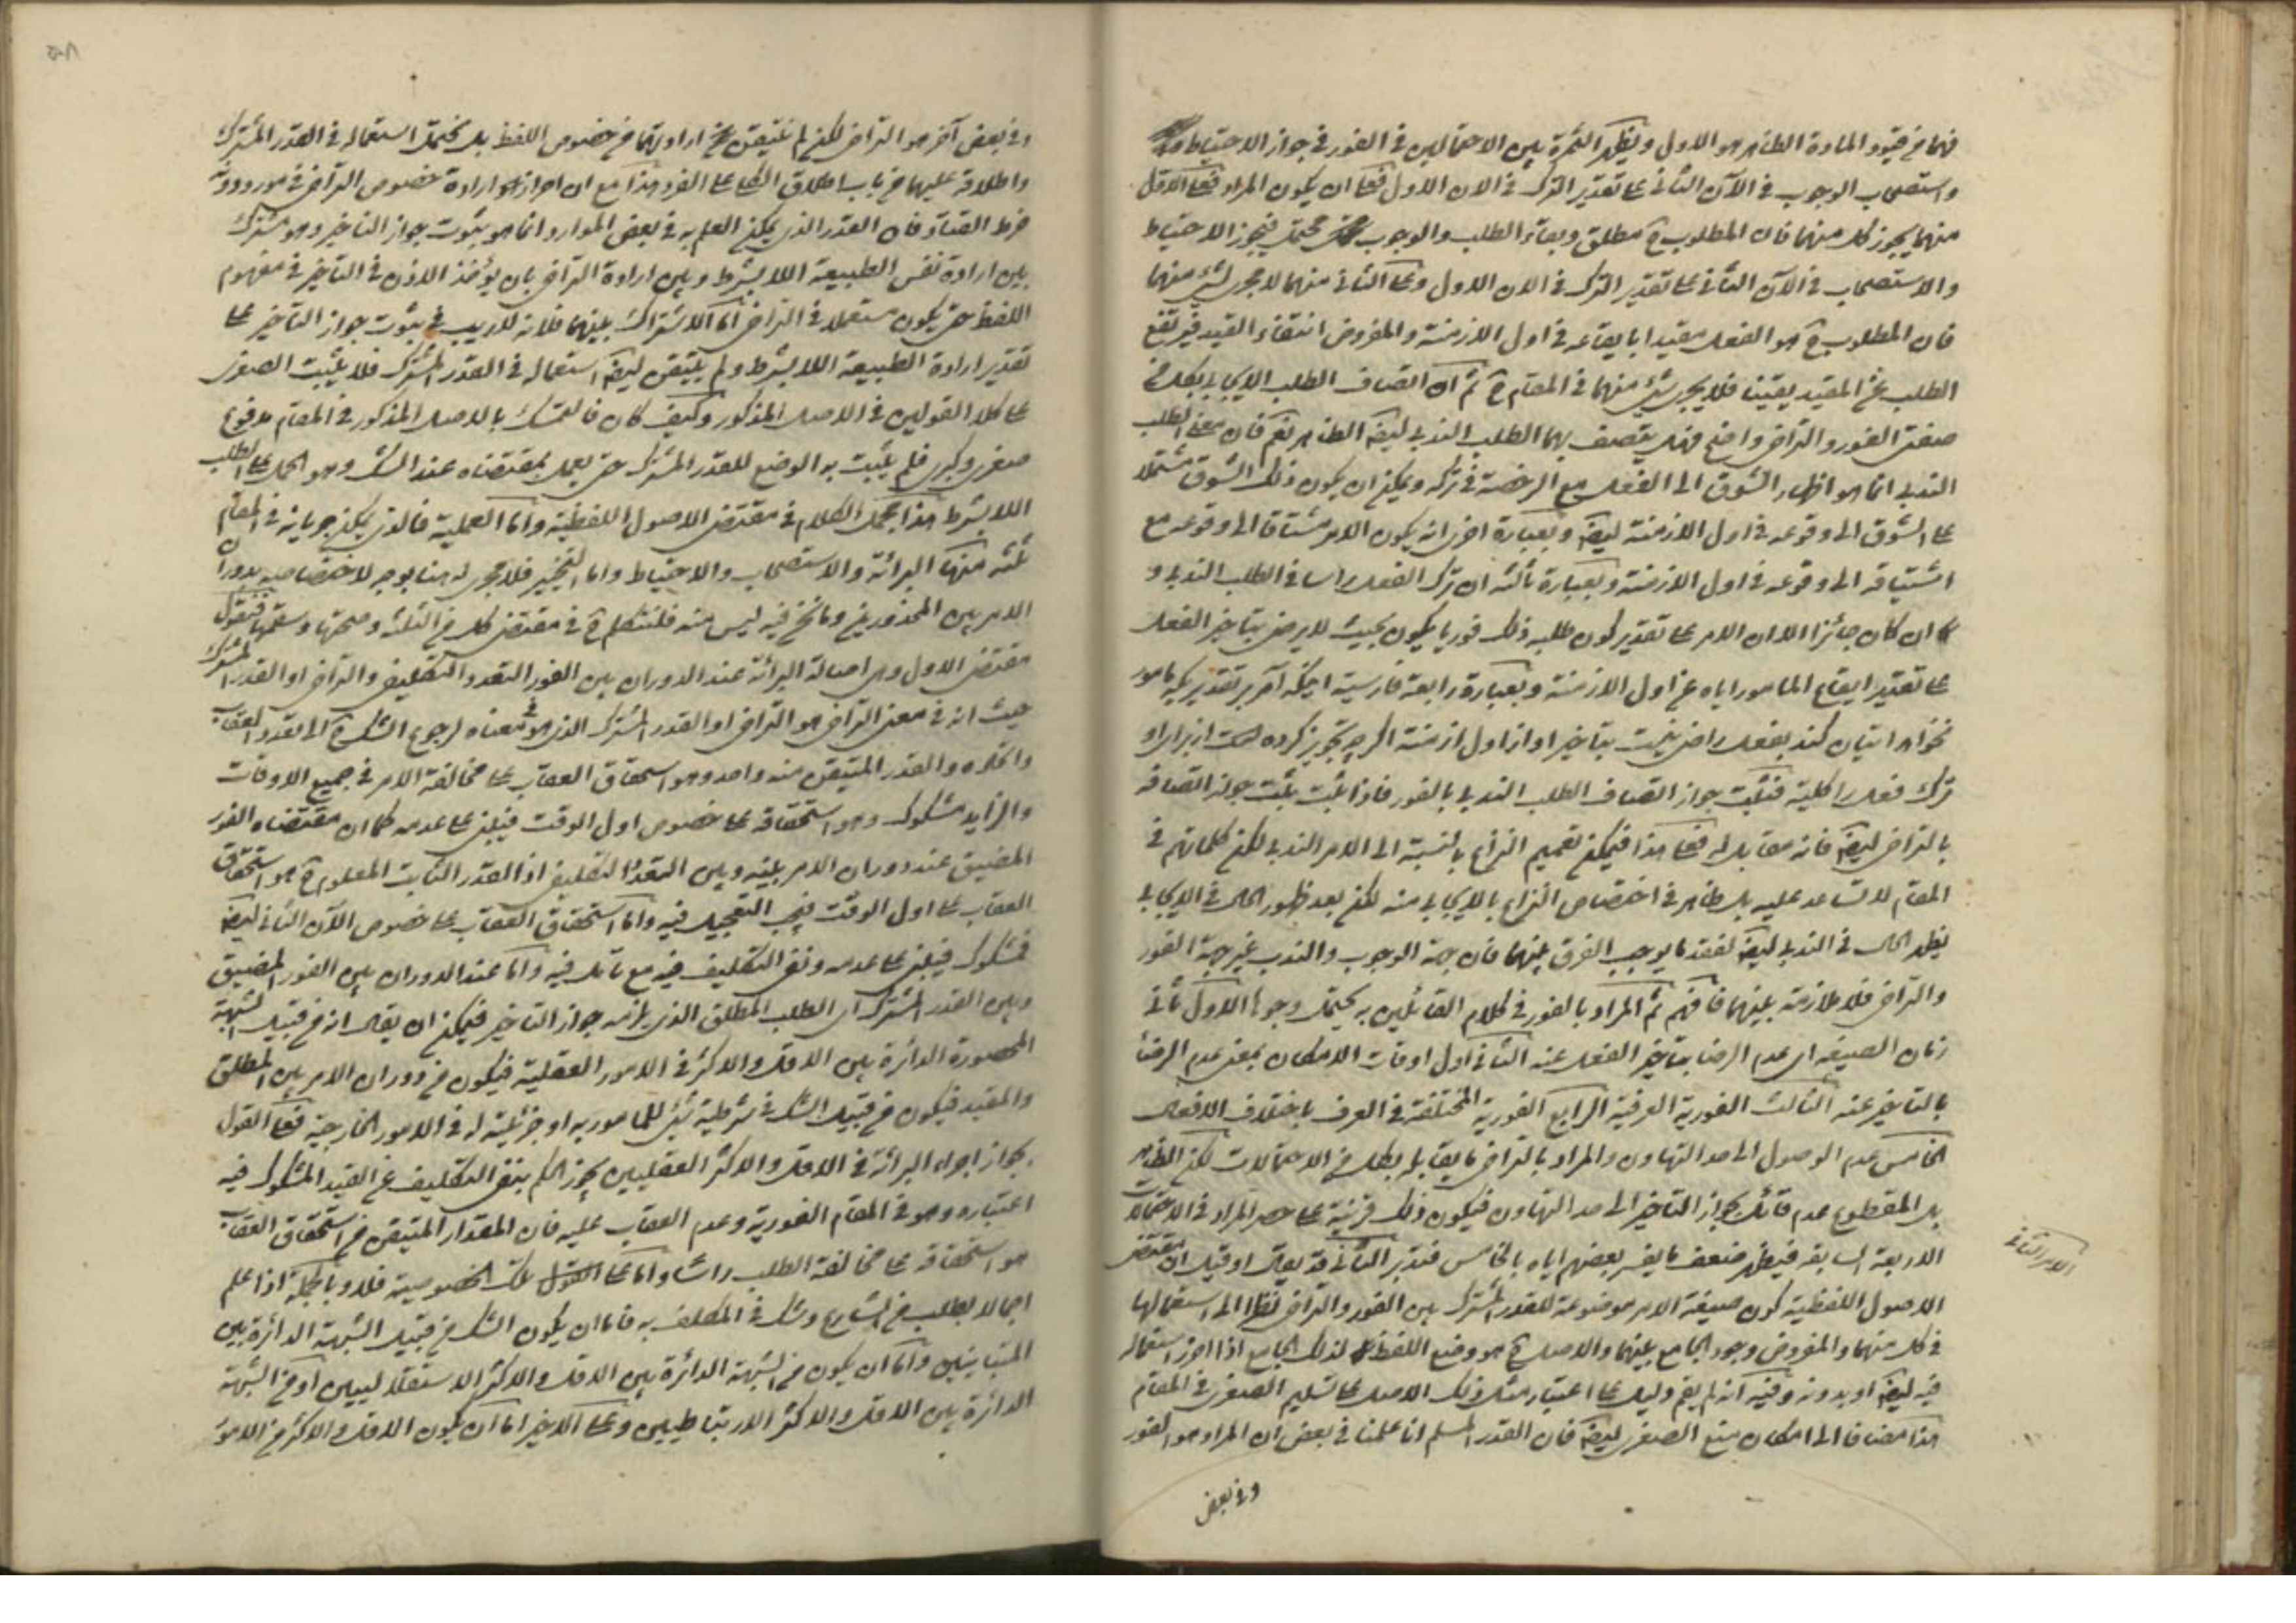 فهما من قيود المادة الظاهر هو الاول ويظهر الثمرة بين الاحتمالين في الفور في جواز الاحتياط
واستصحاب الوجوب في الآن الثاني على تقدير الترك في الان الاول فعلى ان يكون المراد الاول
منهما يجوز كل منهما فان المطلوب ح مطلق وبقاء الطلب والوجوب محتمل فيجوز الاحتياط
والاستصحاب في الآن الثاني على تقدير الترك في الان الاول وعلى الثاني منهما لا يجري شئ منهما
فان المطلوب ح هو الفعل مقيدا بايقاعه في اول الازمنة والمفروض انتفاء القيد فيرتفع
الطلب عن المقيد يقينا فلا يجري شئ منهما في المقام ح ثم ان اتصاف الطلب الايجابي بكل من
صفتي الفور والتراخي واضح فهل يتصف بهما الطلب الندبي ايضا الظاهر نعم فان معنى الطلب
الندبي انما هو اظهار الشوق الى الفعل مع الرخصة في تركه ويمكن ان يكون ذلك الشوق مشتملا
على الشوق الى وقوعه في اول الازمنة ايضا وبعبارة اخرى انه يكون الامر مشتاقا الى وقوعه مع
اشتياقه الى وقوعه في اول الازمنة وبعبارة ثالثة ان ترك الفعل راسا في الطلب الندبي و
ان كان جائزا الا ان الامر على تقدير كون طلبه ذلك فوريا يكون بحيث لا يرضى بتاخير الفعل
على تقدير ايقاع المامور اياه عن اول الازمنة وبعبارة رابعة فارسية اينكه آمر بر تقديريكه مامور
بخواهد اتيان كند بفعل راضى نيست بتاخير او از اول ازمنه اكر چه تجويز كرده است از براى او
ترك فعل را كلية فثبت جواز اتصاف الطلب الندبي بالفور فاذا ثبت ثبت جواز اتصافه
بالتراخي ايضا فانه مقابل له فعلى هذا فيمكن تعميم النزاع بالنسبة الى الامر الندبي لكن كلماتهم في
المقام لا تساعد عليه بل ظاهر في اختصاص النزاع بالايجابي منه لكن بعد ظهور الحال في الايجابي
يظهر الحال في الندبي ايضا لفقد ما يوجب الفرق بينهما فان جهة الوجوب والندب غير جهة الفور
والتراخي فلا ملازمة بينهما فافهم ثم المراد بالفور في كلام القائلين به يحتمل وجوها الاول ثاني
زمان الصيغة اي عدم الرضا بتاخير الفعل عنه الثاني اول اوقات الامكان بمعنى عدم الرضا
بالتاخير عنه الثالث الفورية العرفية الرابع الفورية المختلفة في العرف باختلاف الافعال
الخامس عدم الوصول الى حد التهاون والمراد بالتراخي ما يقابله بكل من الاحتمالات لكن الظاهر
بل المقطوع عدم قائل بجواز التاخير الى حد التهاون فيكون ذلك قرينة على حصر المراد في الاحتمالات
الاربعة السابقة فيظهر ضعف ما يفسر بعضهم اياه بالخامس فتدبر الثاني قد يقال او قيل ان مقتضى
الامر الثاني
الاصول اللفظية كون صيغة الامر موضوعة للقدر المشترك بين الفور والتراخي نظرا الى استعمالها
في كل منهما والمفروض وجود الجامع بينهما والاصل ح هو وضع اللفظ لذلك الجامع اذا احرز استعماله
فيه ايضا او بدونه وفيه انه لم يقم دليل على اعتبار مثل ذلك الاصل على تسليم الصغرى في المقام
هذا مضافا الى امكان منع الصغرى ايضا فان القدر المسلم انا علمنا في بعض ان المراد هو الفور
وفي بعض
وفي بعض آخر هو التراخي لكن لم نتيقن ارادتهما من خصوص اللفظ بل يحتمل استعماله في القدر المشترك
واطلاقه عليهما من باب اطلاق الكلي على الفرد هذا مع ان احراز ارادة خصوص التراخي في مورد دونه
خرط القتاد فان القدر الذي يمكن العلم به في بعض الموارد انما هو ثبوت جواز التاخير وهو مشترك
بين ارادة نفس الطبيعة اللا بشرط وبين ارادة التراخي بان يؤخذ الاذن في التاخير في مفهوم
اللفظ حتى يكون مستعملا في التراخي اما الاشتراك بينهما فلانه لا ريب في ثبوت جواز التاخير على
تقدير ارادة الطبيعة اللا بشرط ولم يتيقن ايضا استعماله في القدر المشترك فلا يثبت الصغرى
على كلا القولين في الاصل المذكور وكيف كان فالتمسك بالاصل المذكور في المقام مدفوع
صغرى وكبرى فلم يثبت به الوضع للقدر المشترك حتى يعمل بمقتضاه عند الشك وهو الحمل على الطلب
اللا بشرط هذا مجمل الكلام في مقتضى الاصول اللفظية واما العملية فالذي يمكن جريانه في المقام
ثلثة منها البرائة والاستصحاب والاحتياط واما التخيير فلا مجرى له هنا بوجه لاختصاصه بدوران
الامر بين المحذورين وما نحن فيه ليس منه فلنتكلم ح في مقتضى كل من الثلثة وصحتها وسقمها فنقول
مقتضى الاول وهى اصالة البرائة عند الدوران بين الفور التعدد التكليفي والتراخي او القدر المشترك
حيث انه في معنى التراخي هو التراخي او القدر المشترك الذي هو في معناه لرجوع الشك ح الى تعدد العقاب
واتحاده والقدر المتيقن منه واحد وهو استحقاق العقاب على مخالفة الامر في جميع الاوقات
والزايد مشكوك وهو استحقاقه على خصوص اول الوقت فينبنى على عدمه كما ان مقتضاه الفور
المضيق عند دوران الامر بينه وبين التعدد التكليفي اذ القدر الثابت المعلوم ح هو استحقاق
العقاب على اول الوقت فيجب التعجيل فيه واما استحقاق العقاب على خصوص الآن الثاني ايضا
فمشكوك فيبنى على عدمه ونفى التكليف فيه مع تامل فيه واما عند الدوران بين الفور المضيق
وبين القدر المشترك اي الطلب المطلق الذي يلزمه جواز التاخير فيمكن ان يقال انه من قبيل الشبهة
المحصورة الدائرة بين الاقل والاكثر في الامور العقلية فيكون من دوران الامر بين المطلق
والمقيد فيكون من قبيل الشك في شرطية شئ للمامور به او جزئيته له في الامور الخارجية فعلى القول
بجواز اجراء البرائة في الاقل والاكثر العقليين يجوز الحكم بنفى التكليف عن القيد المشكوك فيه
اعتباره وهو في المقام الفورية وعدم العقاب عليه فان المقدار المتيقن من استحقاق العقاب
هو استحقاقه على مخالفة الطلب راسا واما على تلك الخصوصية فلا وبالجملة اذا علم
اجمالا بطلب من الشارع وشك في المكلف به فاما ان يكون الشك من قبيل الشبهة الدائرة بين
المتباينين واما ان يكون من الشبهة الدائرة بين الاقل والاكثر الاستقلاليين او من الشبهة
الدائرة بين الاقل والاكثر الارتباطيين وعلى الاخير اما ان يكون الاقل والاكثر من الامور